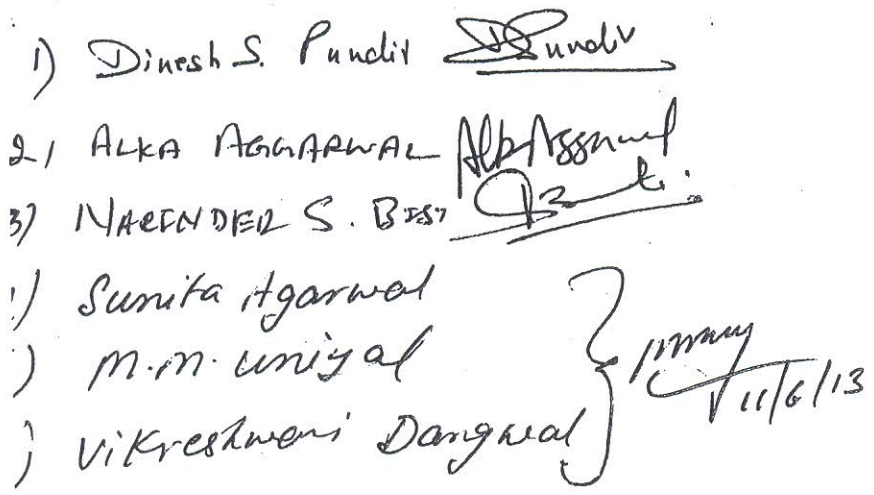 1) Dinesh S. Pundir DSundir
2) ALKA AGGARWAL Alka Aggarwal
3) NARENDER S. BIST
) Sunita Agarwal
) M.M. Uniyal
11/6/13
) Vikreshwari Dangwal